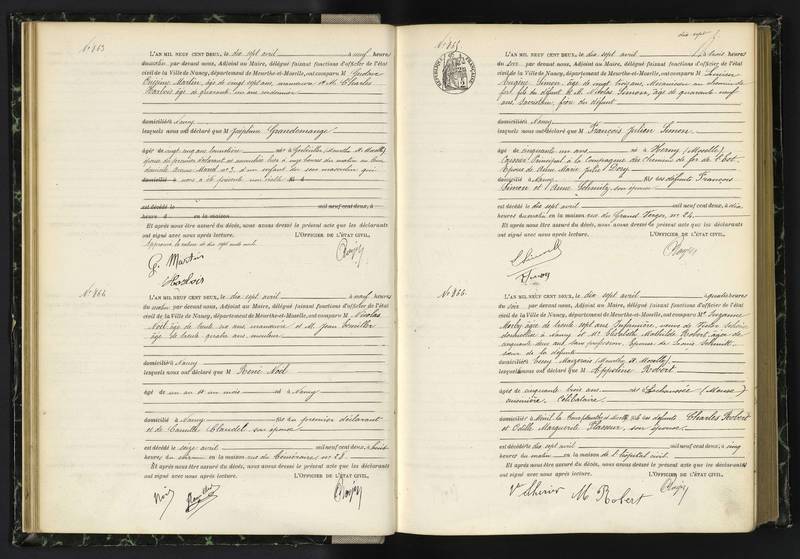 N° 863
L'AN MIL NEUF CENT DEUX, le dix sept avril à neuf heures
du matin par devant nous, Adjoint au Maire, délégué faisant fonctions d'officier de l'état
civil de la Ville de Nancy, département de Meurthe-et-Moselle, ont comparu M Gustave
Eugène Martin, âgé de vingt sept ans, manœuvre et M. Charles
âgé de quarante un ans
domiciliés à Nancy
lesquels nous ont déclaré que M Joséphine Grandemange
âgée de vingt cinq ans née à (Meurthe et Moselle)
épouse du premier déclarant est accouchée hier à onze heures du matin en leur
domicile n° 3, d'un enfant du sexe masculin qui
nous a été présenté sans vie
est décédé le mil neuf cent deux, à
heure en la maison
Et après nous être assuré du décès, nous avons dressé le présent acte que les déclarants
ont signé avec nous après lecture. L'OFFICIER DE L'ÉTAT CIVIL,
G. Martin
N° 864
L'AN MIL NEUF CENT DEUX, le dix sept avril à neuf heures
du matin par devant nous, Adjoint au Maire, délégué faisant fonctions d'officier de l'état
civil de la Ville de Nancy, département de Meurthe-et-Moselle, ont comparu M Nicolas
Noël âgé de trente six ans, manœuvre et M. Jean
âgé de trente quatre ans,
domiciliés à Nancy
lesquels nous ont déclaré que M René Noël
âgé de un an et un mois né à Nancy
domicilié à Nancy fils du premier déclarant
et de Camille Claudel son épouse
est décédé le seize avril mil neuf cent deux, à huit
heures du soir en la maison rue du n° 28
Et après nous être assuré du décès, nous avons dressé le présent acte que les déclarants
ont signé avec nous après lecture. L'OFFICIER DE L'ÉTAT CIVIL,
Noël
dix sept
N° 865
L'AN MIL NEUF CENT DEUX, le dix sept avril à trois heures
du soir par devant nous, Adjoint au Maire, délégué faisant fonctions d'officier de l'état
civil de la Ville de Nancy, département de Meurthe-et-Moselle, ont comparu M Lucien
Eugène Simon, âgé de vingt trois ans, Mécanicien au chemin de
fer, fils du défunt et M. Nicolas Simon, âgé de quarante neuf
ans, frère du défunt
domiciliés à Nancy
lesquels nous ont déclaré que M François Julien Simon
âgé de cinquante un ans né à Herny (Moselle)
Caissier Principal à la Compagnie des Chemins de fer de l'Est
Époux de Anne Marie Julie Dory
domicilié à Nancy fils des défunts François
Simon et Anne Schmitz, son épouse
est décédé le dix sept avril mil neuf cent deux, à dix
heures du matin en la maison rue du Grand Verger, n° 24
Et après nous être assuré du décès, nous avons dressé le présent acte que les déclarants
ont signé avec nous après lecture. L'OFFICIER DE L'ÉTAT CIVIL,
N° 866.
L'AN MIL NEUF CENT DEUX, le dix sept avril à quatre heures
du soir par devant nous, Adjoint au Maire, délégué faisant fonctions d'officier de l'état
civil de la Ville de Nancy, département de Meurthe-et-Moselle, ont comparu Me Suzanne
âgée de trente sept ans Infirmière, veuve de Victor
domiciliée à Nancy et Me Elisabeth Mathilde Robert âgée de
cinquante deux ans sans profession, Épouse de Louis Schmitt
sœur de la défunte
domiciliée (Meurthe et Moselle)
lesquels nous ont déclaré que M Appoline Robert
âgée de cinquante trois ans née à Lachaussée (Meuse)
cuisinière célibataire
domiciliée à fille des défunts Charles Robert
et Odille Marguerite son épouse
est décédée le dix sept avril mil neuf cent deux, à cinq
heures du matin en la maison de l'hôpital civil
Et après nous être assuré du décès, nous avons dressé le présent acte que les déclarants
ont signé avec nous après lecture. L'OFFICIER DE L'ÉTAT CIVIL,
M Robert